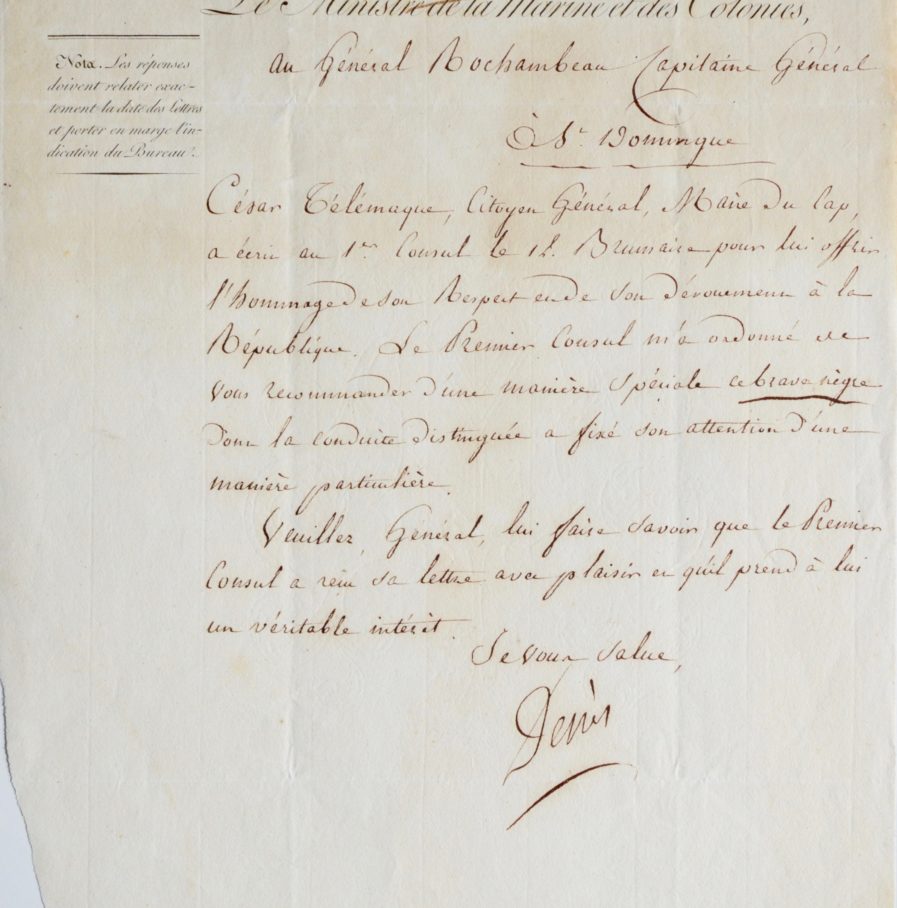 Le Ministre de la Marine et des Colonies,
Nota. Les réponses
doivent relater exac-
tement la date des Lettres
et porter en marge l'in-
dication du Bureau.
au Général Rochambeau Capitaine Général
à St. Domingue
César Télémaque, Citoyen Général, Maire du Cap,
a écrit au 1er Consul le 12. Brumaire pour lui offrir
l'hommage de son Respect et de son dévouement à la
République. Le Premier Consul m'a ordonné de
vous recommander d'une manière spéciale ce brave nègre
dont la conduite distinguée a fixé son attention d'une
manière particulière.
Veuillez, Général, lui faire savoir que le Premier
Consul a reçu sa lettre avec plaisir et qu'il prend à lui
un véritable intérêt.
Je vous salue,